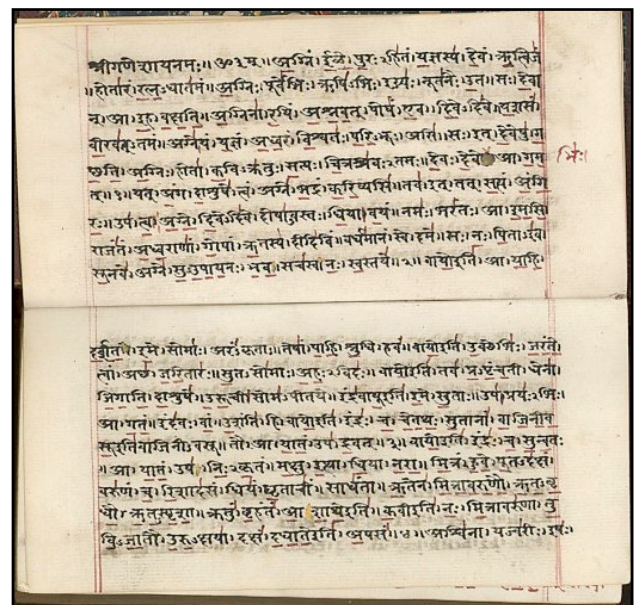 श्रीगणेशायनमः॥ॐ३म्॥अग्निं।ईळे।पुरःऽहितं।यज्ञस्य।देवं।ऋत्विजं
॥होतारं।रत्नऽधातमं॥अग्निः।पूर्वेभिः।ऋषिऽभिः।ईड्यः।नूतनैः।उत॥सः।देवा
न्।आ।इह।वक्षति॥अग्निना।रयिं।अश्नवत्।पोषं।एव।दिवेऽदिवे॥यशसं
वीरवत्ऽतमं॥अग्ने।यं।यज्ञं।अध्वरं।विश्वतः।परिऽभूः।असि॥सः।इत्।देवेषु।ग
च्छति।अग्निः।होता।कविऽक्रतुः।सत्यः।चित्रश्रवःऽतमः॥देवः।देवे आ।गम भिः।
त्॥१॥यत्।अंग।दाशुषे।त्वं।अग्ने।भद्रं।करिष्यसि॥तव।इत्।तत्।सत्यं।अंगि
रः॥उप।त्वा।अग्ने।दिवेऽदिवे।दोषाऽवस्तः।धिया।वयं॥नमः।भरंतः।आ।इमसि
राजंतं।अध्वराणां।गोपां।ऋतस्य।दीदिविं॥वर्धमानं।स्वे।दमे॥सः।नः।पिताऽइव।
सूनवे।अग्ने।सुऽउपायनः।भव॥सचस्व।नः।स्वस्तये॥२॥वायोइति।आ।याहि।
दर्शत।इमे।सोमाः।अरंऽकृताः॥तेषां।पाहि।श्रुधि।हवं॥वायोइति।उक्थेभिः।जरंते।
त्वां।अच्छ।जरितारः॥सुतऽसोमाः।अहःऽविदः॥वायोइति।तव।प्रऽपृंचती।धेना।
जिगाति।दाशुषे॥उरूची।सोमऽपीतये॥इंद्रवायूइति।इमे।सुताः॥उप।प्रयःऽभिः।
आ।गतं॥इंदवः।वां।उशंति।हि॥वायोइति।इंद्रः।च।चेतथः।सुतानां।वाजिनीव
सूइतिवाजिनीवसू॥तौ।आ।यातं।उप।द्रवत्॥३॥वायोइति।इंद्रः।च।सुन्वतः
॥आ।यातं।उप।निःऽकृतं॥मक्षु।इत्था।धिया।नरा॥मित्रं।हुवे।पूतऽदक्षं।
वरुणं।च।रिशादसं॥धियं।घृताचीं।साधंता॥ऋतेन।मित्रावरुणौ।ऋतऽवृ
धौ।ऋतऽस्पृशा॥क्रतुं।बृहंतं।आशाथेइति॥कवीइति।नः।मित्रावरुणा।तु
विऽजातौ।उरुऽक्षया॥दक्षं।दधातेइति।अपसं॥४॥अश्विना।यज्वरीः।इषः।